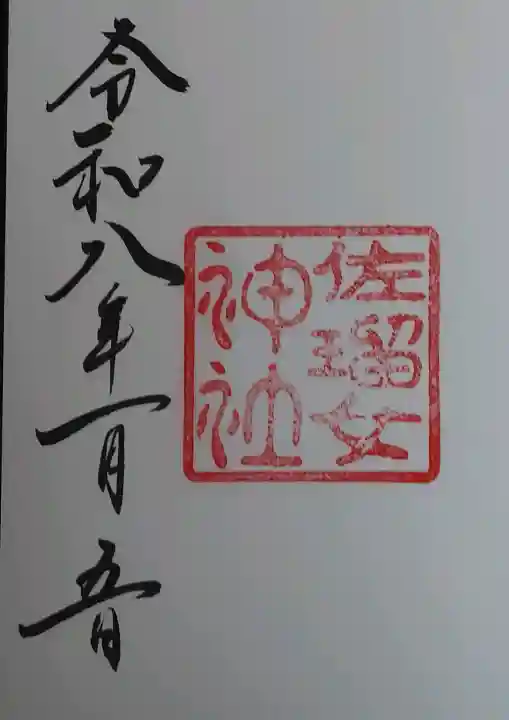 佐瑠女
神社
令和八年一月五日